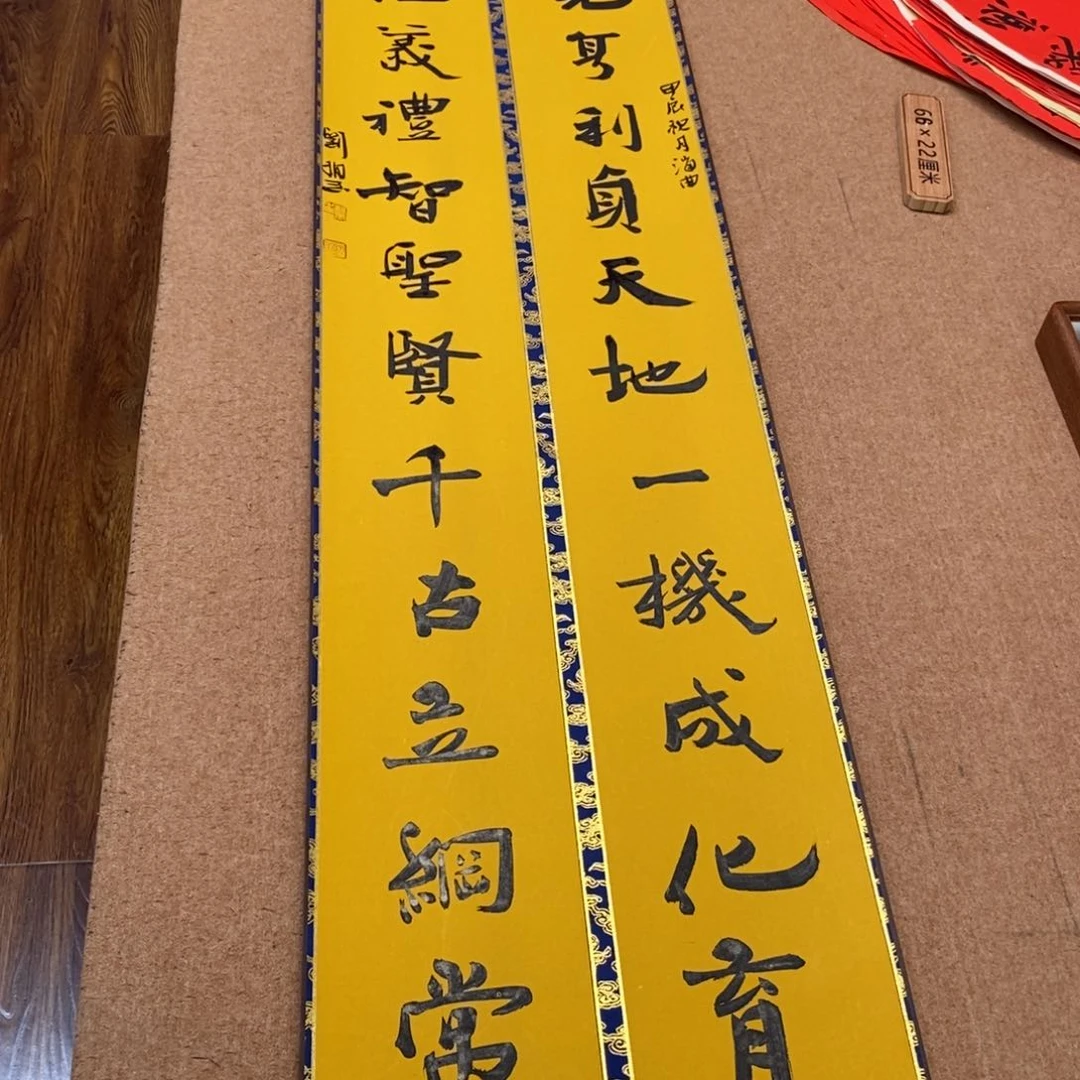 元亨利貞天地一機成化育
甲辰
仁義禮智聖賢千古立綱常
劉
66×22厘米